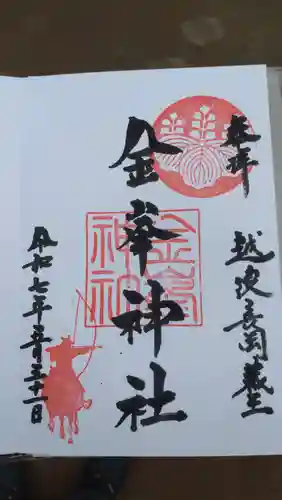 奉拝
越後長岡藏王
金峯神社
金峯神社
令和七年五月三十一日